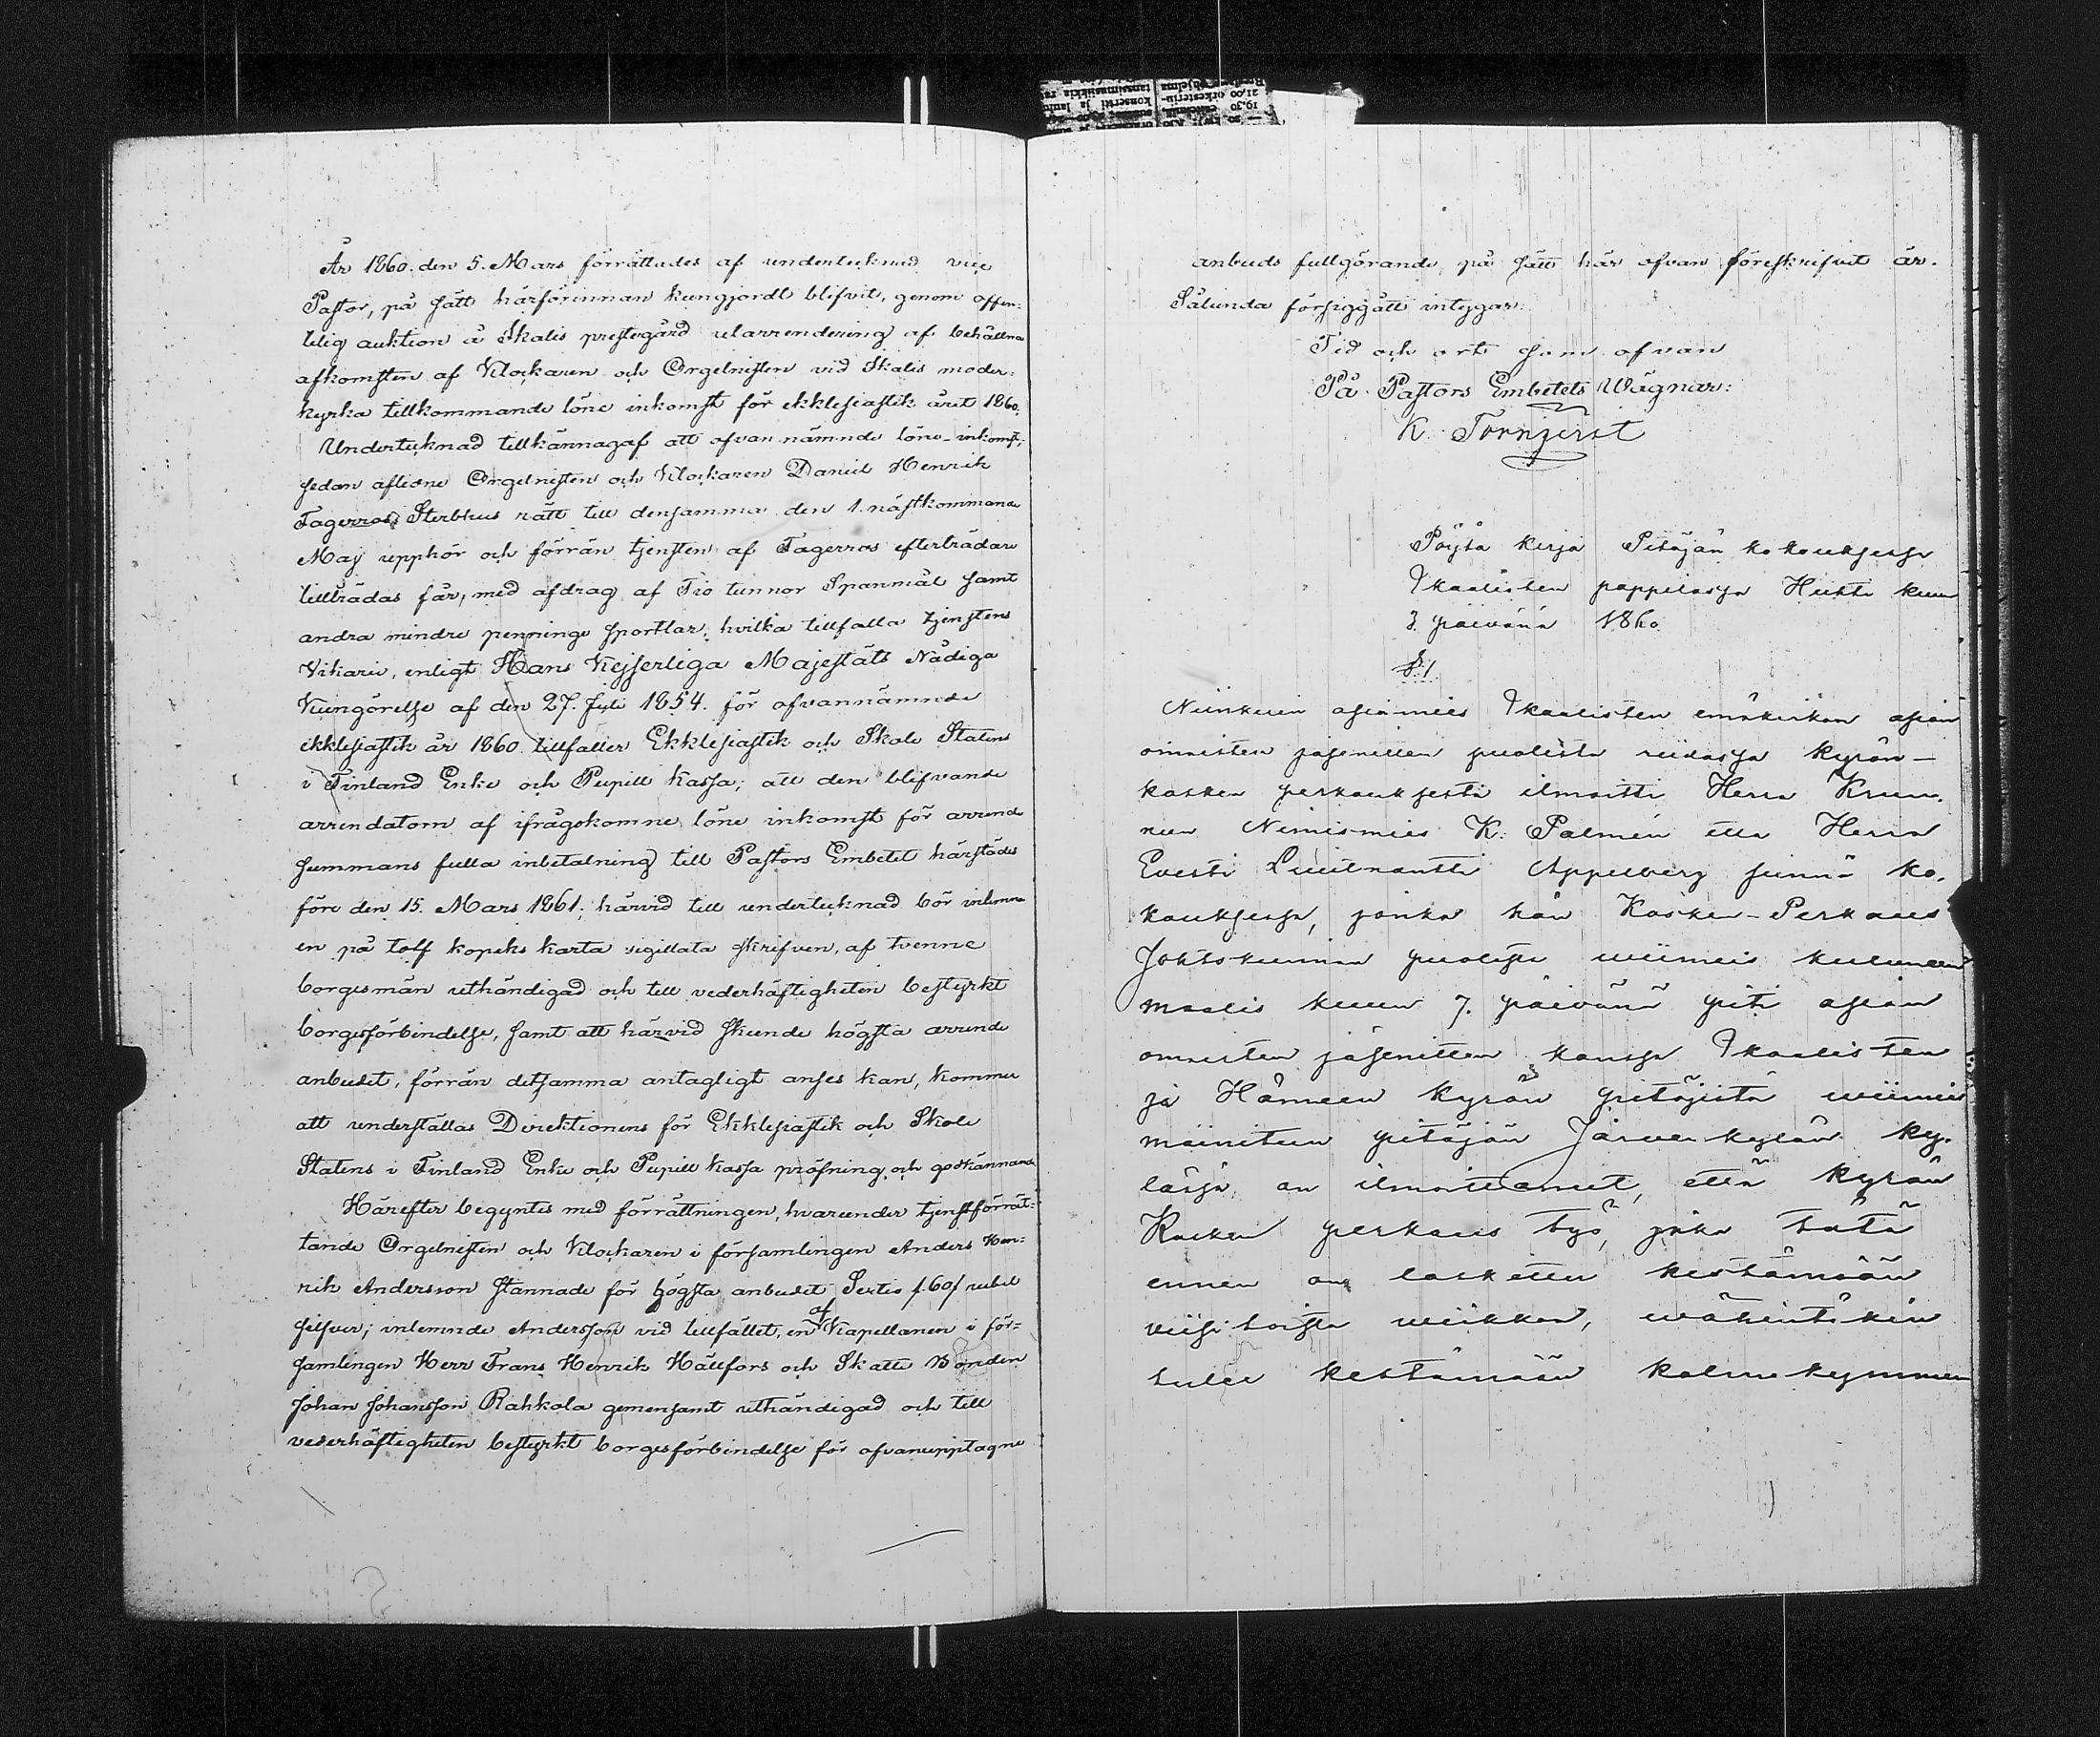 År 1860. den 5. Mars förrättades af undertecknad vice
Pastor, på sätt härförinnan kungjordt blifvit, genom offen-
telig auktion å Ikalis prestegård utarrendering af behållna
afkomsten af Klockaren och Orgelnisten vid Ikalis moder-
kyrka tillkommande löne inkomst för ekklesiastik året 1860.
Undertecknad tillkännagaf att ofvannämnde löne-inkomst,
sedan aflidne Orgelnisten och Klockaren Daniel Henrik
Fagerroos Sterbhus rätt till densamma den 1. nästkommande
Maj upphör och förrän tjensten af Fagerros efterträdare
tillträdas får, med afdrag af Tio tunnor Spanmål samt
andra mindre penninge sportlar, hvilka tillfalla tjenstens
Vikarie, enligt Hans Kejserliga Majestäts Nådiga
Kungörelse af den 27. Juli 1854. för ofvannämnde
ekklesiastik år 1860. tillfaller Ekklesiastik och Skole Statens
i Finland Enke och Pupill Kassa; att den blifvande
arrendatorn af ifrågakomne löne inkomst för arrende
summans fulla inbetalning till Pastors Embetet härstädes
före den 15. Mars 1861, härvid till undertecknad bör inlemna
en på tolf kopeks karta sigillata skrifven, af tvenne
borgesmän uthändigad och till vederhäftigheten bestyrkt
borgesförbindelse, samt att härvid skeende högsta arrende
anbudet, förrän detsamma antagligt anses kan, kommer
att underställas Direktionens för Ekklesiastik och Skole
Statens i Finland Enke och Pupill Kassa pröfning och godkännande
Härefter begyntes med förrättningen, hvarunder tjenstförrät-
tande Orgelnisten och Klockaren i församlingen Anders Hen-
rik Andersson stannade för högsta anbudet Sextio /.60/ rubel
silfver; inlemnde Andersson vid tillfället, en af Kapellanen i för-
samlingen Herr Frans Henrik Hällfors och Skatte Bonden
Johan Johansson Rahkola gemensamt uthändigad och till
vederhäftigheten bestyrkt borgesförbindelse för ofvanupptagne
anbuds fullgörande, på sätt här ofvan föreskrifvit är.
Sålunda försiggått intygar:
Tid och ort som ofvan
På Pastors Embetets Wägnar:
K. Törnqvist
Pöytä kirja Pitäjän kokouksessa
Ikaalisten pappilassa Huhti kuun
3. päivänä 1860.
§.1.
Niinkuin asiamies Ikaalisten emäkirkon asian
omaisten jäsenitten puolesta riidassa Kyrön-
kosken perkauksesta ilmoitti Herra Kruu-
nun Nimismies K. Palmén että Herra
Eversti Luutnantti Appelberg siinä ko-
kouksessa, jonka hän Kosken-Perkaus
Johtokunnan puolesta wiimeis kuluneen
maalis kuun 7. päivänä piti asian
omaisten jäsenitten kanssa Ikaalisten
ja Hämeen kyrön pitäjistä wiimeis
mainitun pitäjän Järwenkylän ky-
lässä, on ilmoittanut, että Kyrön
Kosken perkaus työ, joka tätä
ennen on laskettu kestämään
viisi toista wiikkoa, wähintäkin
tulee kestämään kolmekymmen